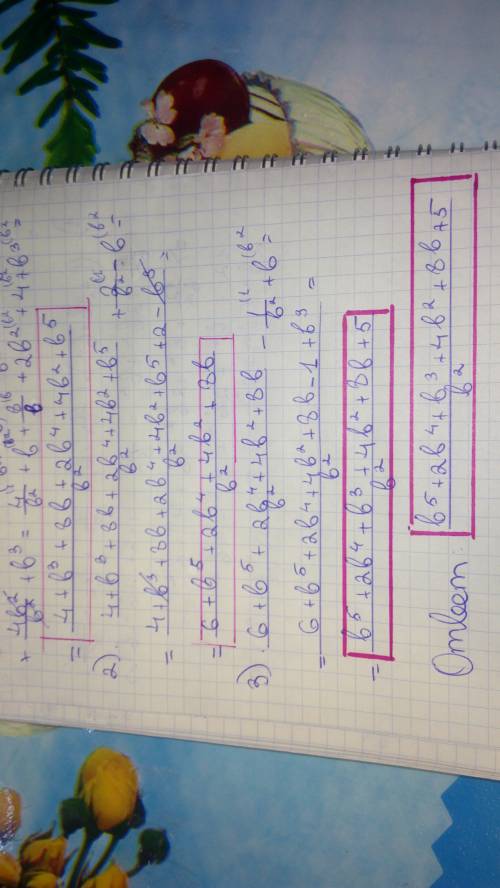 + 4b²/b² + b³ = 4/b² + b + 3b/b + 2b² + 4 + b³ =
= 4 + b³ + 3b + 2b⁴ + 4b² + b⁵ / b²
2). 4 + b³ + 3b + 2b⁴ + 4b² + b⁵ / b² + 2/b² - b =
= 4 + b³ + 3b + 2b⁴ + 4b² + b⁵ + 2 - b³ / b² =
= 6 + b⁵ + 2b⁴ + 4b² + 3b / b²
3). 6 + b⁵ + 2b⁴ + 4b² + 3b / b² - 1/b² + b =
= 6 + b⁵ + 2b⁴ + 4b² + 3b - 1 + b³ / b² =
= b⁵ + 2b⁴ + b³ + 4b² + 3b + 5 / b²
Ответ: b⁵ + 2b⁴ + b³ + 4b² + 3b + 5 / b²